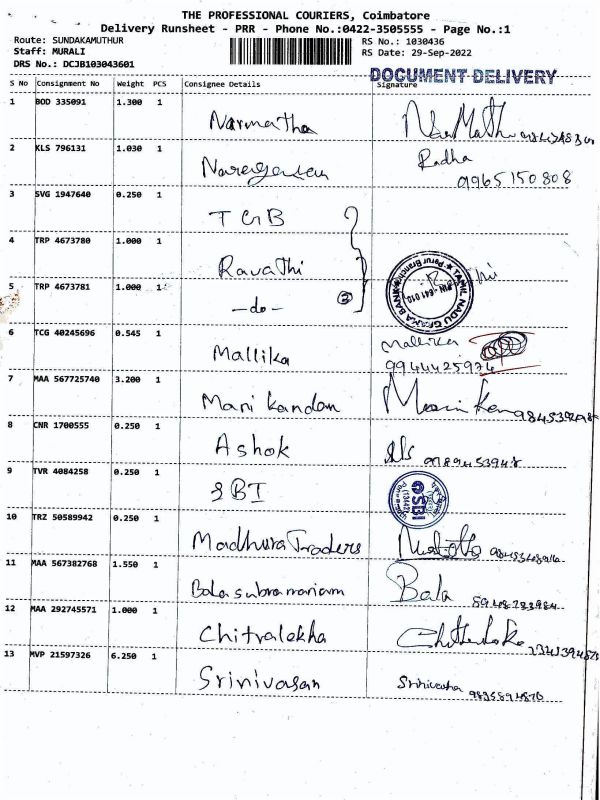 THE PROFESSIONAL COURIERS, Coimbatore
Delivery Runsheet - PRR - Phone No.:0422-3505555 - Page No.:1
Route: SUNDAKAMUTHUR
RS No.: 1030436
Staff: MURALI
RS Date: 29-Sep-2022
DRS No.: DCJB103043601
DOCUMENT DELIVERY
S No Consignment No Weight PCS Consignee Details Signature
1 BOD 335091 1.300 1 Narmatha
2 KLS 796131 1.030 1 Radha
9965150808
3 SVG 1947640 0.250 1 TGB
4 TRP 4673780 1.000 1 Ravathi
5 TRP 4673781 1.000 1 -do- 3
TAMIL NADU GRAMA BANK
Perur Branch
PIN - 641 010
6 TCG 40245696 0.545 1 Mallika Mallika
9944425974
7 MAA 567725740 3.200 1 Manikandan
8 CNR 1700555 0.250 1 Ashok
9 TVR 4084258 0.250 1 SBI
SBI
10 TRZ 50589942 0.250 1 Madhura Traders
11 MAA 567382768 1.550 1 Balasubramaniam Bala
12 MAA 292745571 1.000 1 Chitralekha
13 MVP 21597326 6.250 1 Srinivasan